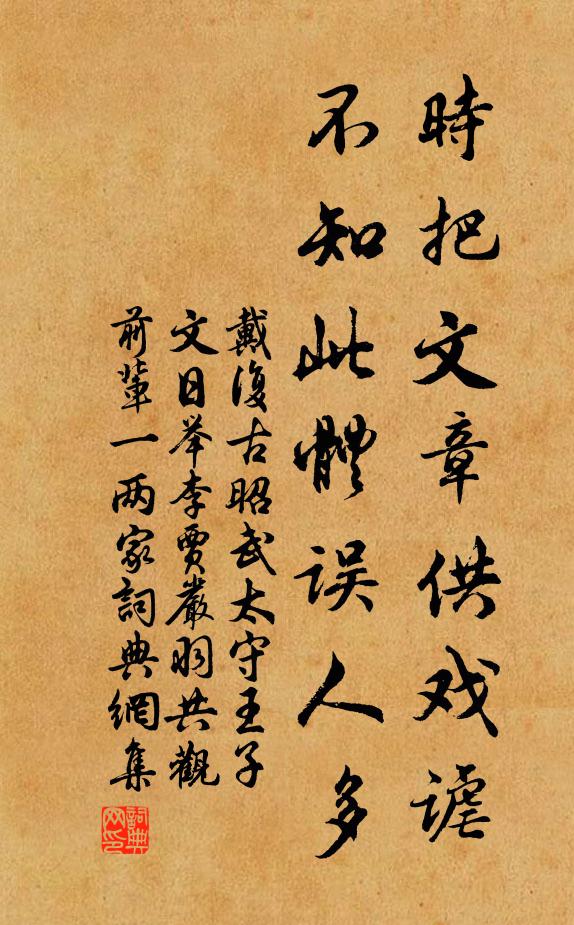 時把文章供戏謔
不知此體误人多
戴復古昭武太守王子
文日举李賈嚴羽共觀
前輩一两家詞典網集
詞典网印